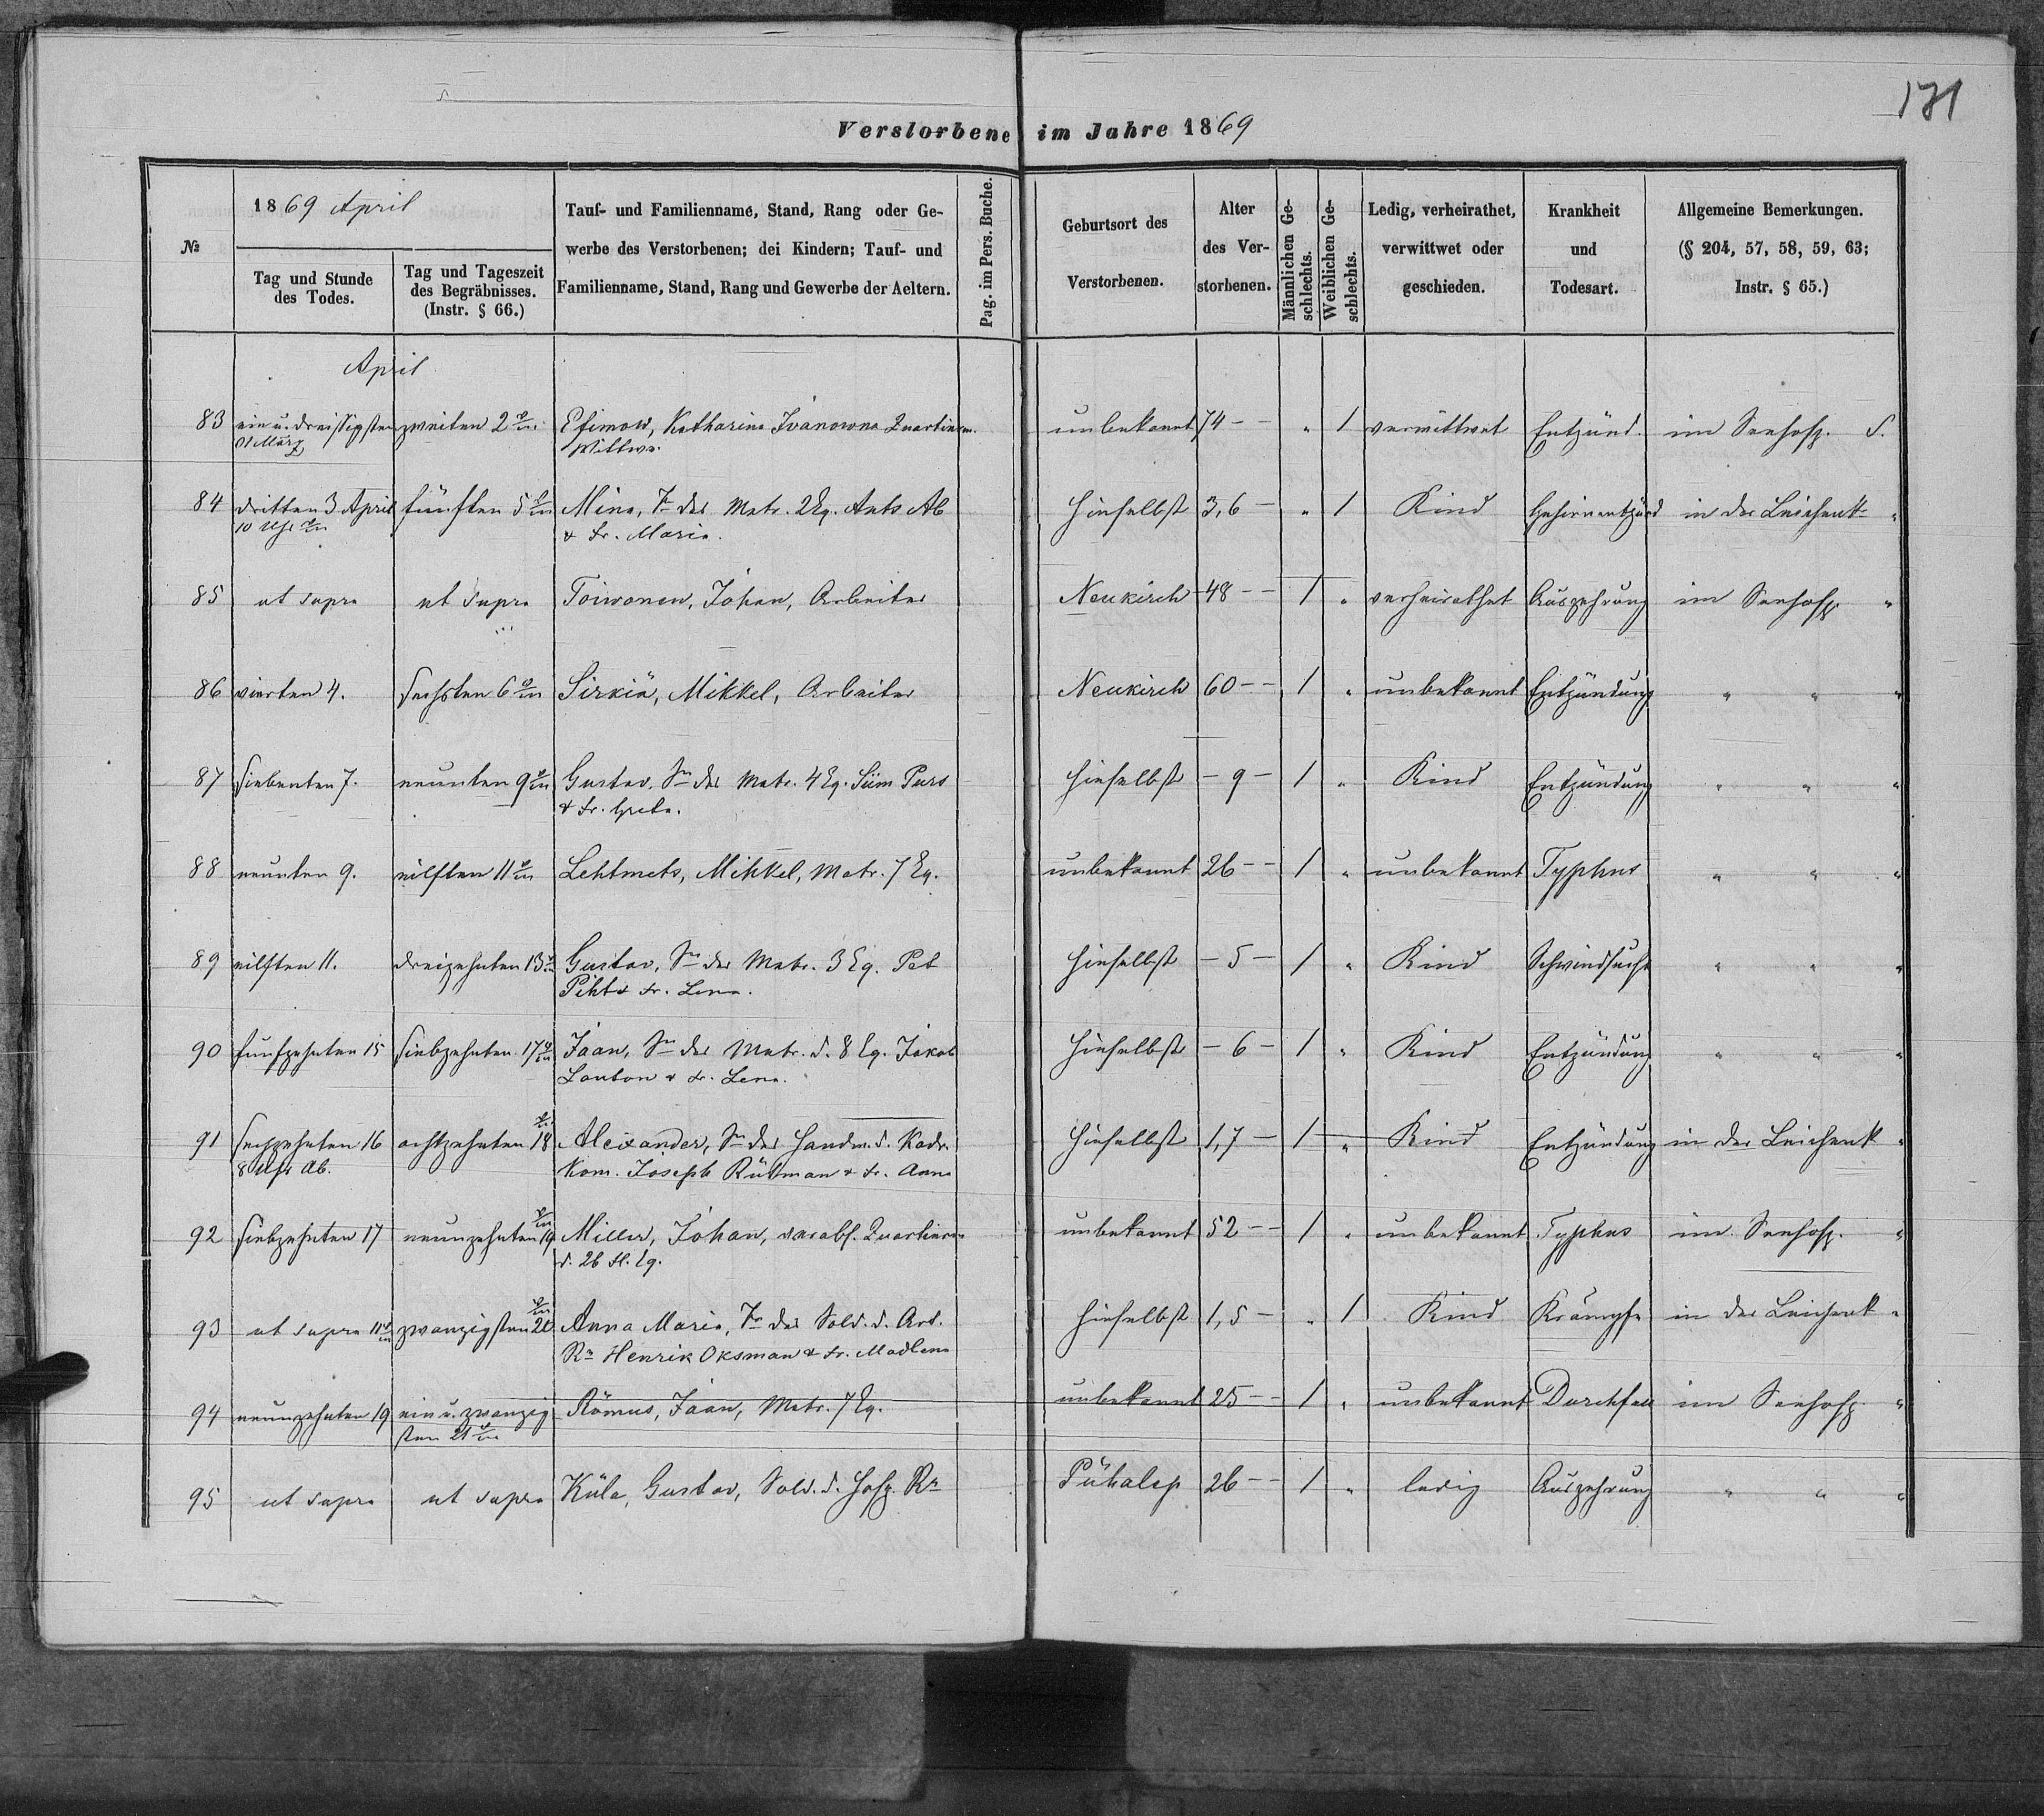 171
Verstorbene im Jahre 1869
№
1869 April
Tag und Stunde des Todes.
Tag und Tageszeit des Begräbnisses. (Instr. § 66.)
Tauf- und Familienname, Stand, Rang oder Ge-
werbe des Verstorbenen; dei Kindern; Tauf- und
Familienname, Stand, Rang und Gewerbe der Aeltern.
Pag. im Pers. Buche.
Geburtsort des Verstorbenen.
Alter des Ver-storbenen.
Männlichen Ge-schlechts.
Weiblichen Ge-schlechts.
Ledig, verheirathet, verwittwet oder geschieden.
Krankheit und Todesart.
Allgemeine Bemerkungen. (§ 204, 57, 58, 59, 63; Instr. § 65.)
April
83 ein u. dreißigsten zweiten 2 Efimow, Katharina Ivanowna Quartierm. unbekannt 74 - - " 1 verwittwet Entzünd. im Seehosp. S.
31 März Wittwe.
84 dritten 3 April fünften 5 Mina, Tr des Matr. 2 Eq. Ants Ab hieselbst 3,6 - " 1 Kind Gehirnentzünd in der Leichenk. "
10 Uhr & Fr. Maria.
85 ut supra ut supra Toiwonen, Johan, Arbeiter Neukirch 48 - - 1 " verheirathet Auszehrung im Seehosp. "
86 vierten 4. sechsten 6 Sirkiä, Mikkel, Arbeiter Neukirch 60 - - 1 " unbekannt Entzündung " " "
87 siebenten 7. neunten 9 Gustav, Sn des Matr. 4 Eq. Siim Purs hieselbst - 9 - 1 " Kind Entzündung " " "
& Fr. Greta.
88 neunten 9. eilften 11 Lehtmets, Mihkel, Matr. 7 Eq. unbekannt 26 - - 1 " unbekannt Typhus " " "
89 eilften 11. dreizehnten 13 Gustav, Sn des Matr. 3 Eq. Pet hieselbst - 5 - 1 " Kind Schwindsucht " " "
Piht & Fr. Lena.
90 fünfzehnten 15 siebzehnten 17 Jaan, Sn des Matr. d. 8 Eq. Jakob hieselbst - 6 - 1 " Kind Entzündung " " "
Lauton & Fr. Lena.
91 sechzehnten 16 achtzehnten 18 Alexander, Sn des Handw. d. Kadr. hieselbst 1,7 - 1 " Kind Entzündung in der Leichenk "
8 Uhr Ab. Kom. Joseph Rütman & Fr. Anna
92 siebzehnten 17 neunzehnten 19 Miller, Johan, verabs. Quartierm unbekannt 52 - - 1 " unbekannt Typhus im Seehosp. "
d. 26 Fl. Eq.
93 ut supra 11 zwanzigsten 20 Anna Maria, Tr des Sold. d. Art. hieselbst 1,5 - " 1 Kind Krämpfe in der Leichenk "
Rn Henrik Oksman & Fr. Madlena
94 neunzehnten 19 ein u. zwanzig Römus, Jaan, Matr. 7 Eq. unbekannt 25 - - 1 " unbekannt Durchfall im Seehosp. "
sten 21
95 ut supra ut supra Küla, Gustav, Sold. d. Hosp. Rn Pühalep 26 - - 1 " ledig Auszehrung " " "